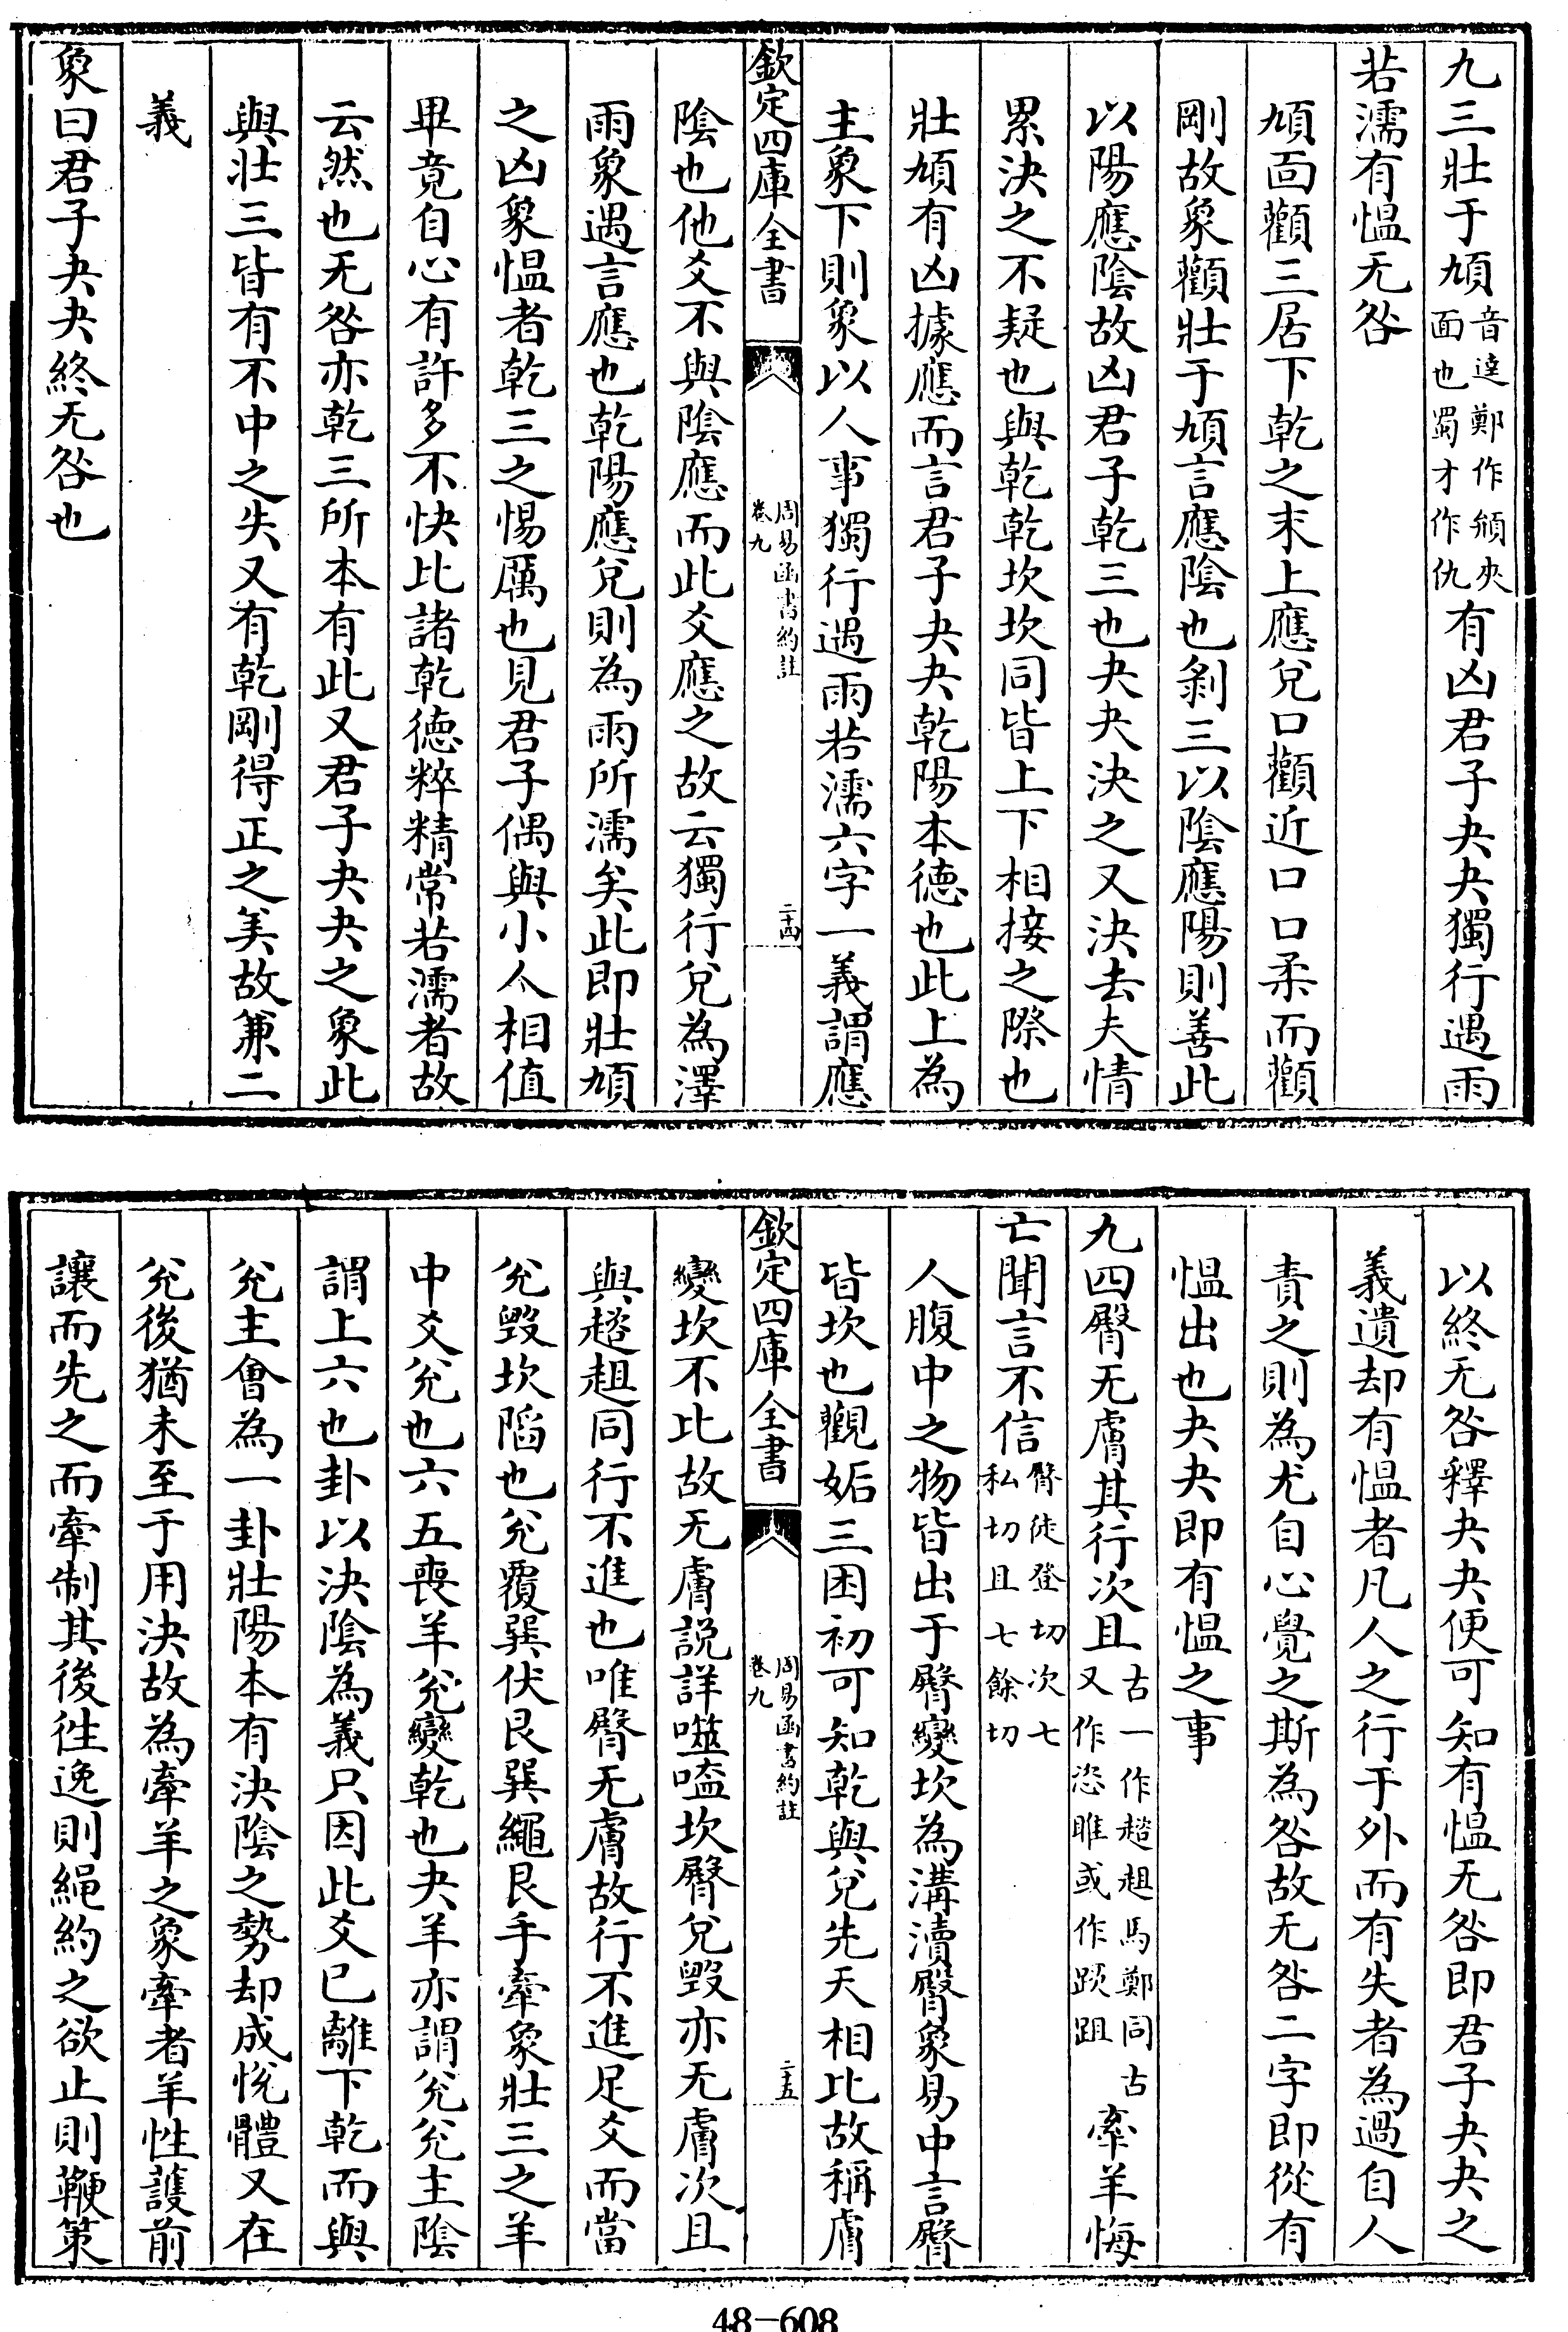 九三壯于頄音逵鄭作頯夾面也蜀才作仇有凶君子夬夬獨行遇雨
若濡有愠无咎
頄面顴三居下乾之末上應兌口顴近口口柔而顴
剛故象顴壯于頄言應陰也剝三以陰應陽則善此
以陽應陰故凶君子乾三也夬夬決之又決去夫情
累決之不疑也與乾乾坎坎同皆上下相接之際也
壯頄有凶據應而言君子夬夬乾陽本德也此上為
主象下則象以人事獨行遇雨若濡六字一義謂應
欽定四庫全書
周易函書約註
卷九
二十四
陰也他爻不與陰應而此爻應之故云獨行兌為澤
雨象遇言應也乾陽應兌則為雨所濡矣此即壯頄
之凶象愠者乾三之惕厲也見君子偶與小人相值
畢竟自心有許多不快比諸乾德粹精常若濡者故
云然也无咎亦乾三所本有此又君子夬夬之象此
與壯三皆有不中之失又有乾剛得正之美故兼二
義
象曰君子夬夬終无咎也
以終无咎釋夬夬便可知有愠无咎即君子夬夬之
義遺却有愠者凡人之行于外而有失者為過自人
責之則為尤自心覺之斯為咎故无咎二字即從有
愠出也夬夬即有愠之事
九四臀无膚其行次且古一作趑趄馬鄭同古又作恣睢或作趺跙牽羊悔
亡聞言不信臀徒登切次七私切且七餘切
人腹中之物皆出于臀變坎為溝瀆臀象易中言臀
皆坎也觀姤三困初可知乾與兌先天相比故稱膚
欽定四庫全書
周易函書約註
卷九
二十五
變坎不比故无膚說詳噬嗑坎臀兌毀亦无膚次且
與趑趄同行不進也唯臀无膚故行不進足爻而當
兊毀坎陷也兊覆巽伏艮巽繩艮手牽象壯三之羊
中爻兊也六五喪羊兊變乾也夬羊亦謂兊兊主陰
謂上六也卦以決陰為義只因此爻已離下乾而與
兊主會為一卦壯陽本有決陰之勢却成悅體又在
兊後猶未至于用決故為牽羊之象牽者羊性護前
讓而先之而牽制其後徃逸則繩約之欲止則鞭策
48-608